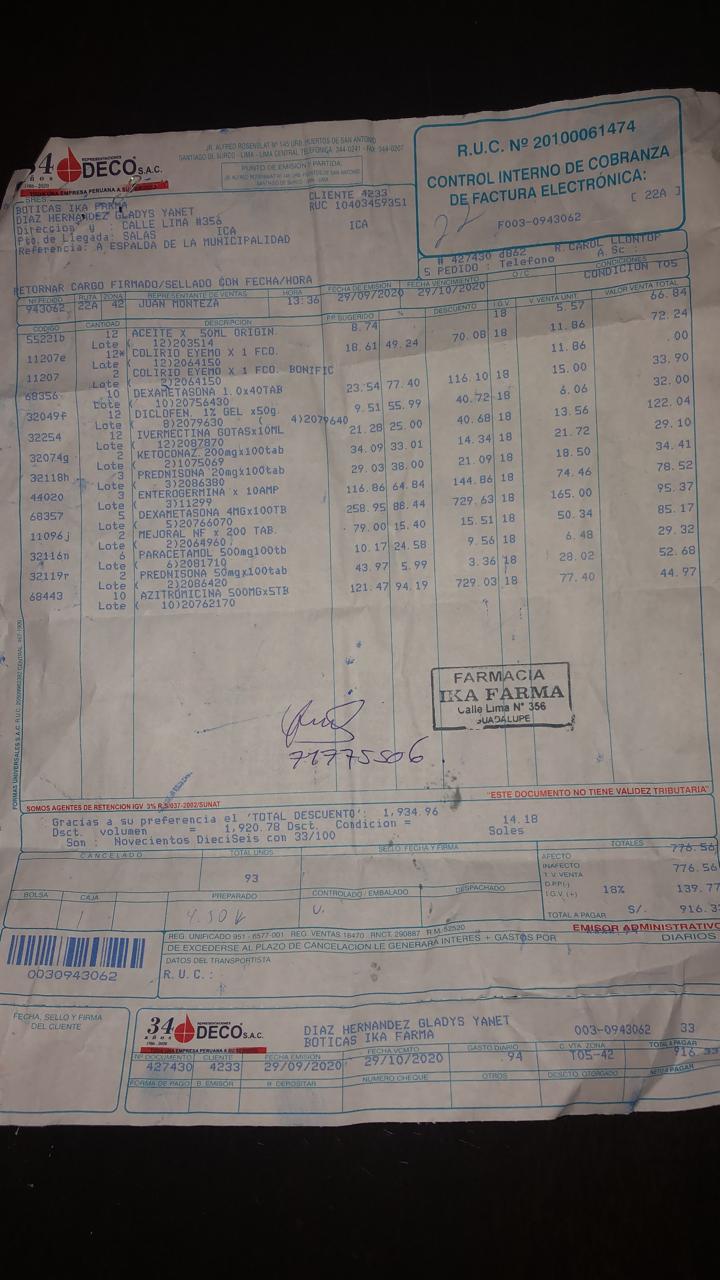 34 años
1986 - 2020
REPRESENTACIONES
DECO S.A.C.
TODA UNA EMPRESA PERUANA A SU SERVICIO
JR. ALFRED ROSENBLAT Nº 145 URB. HUERTOS DE SAN ANTONIO
SANTIAGO DE SURCO - LIMA - LIMA CENTRAL TELEFONICA: 344-0241 - FAX: 344-0207
PUNTO DE EMISIÓN Y PARTIDA:
JR. ALFRED ROSENBLAT Nº 145 URB. HUERTOS DE SAN ANTONIO
SANTIAGO DE SURCO - LIMA - LIMA
R.U.C. Nº 20100061474
CONTROL INTERNO DE COBRANZA
DE FACTURA ELECTRÓNICA:
[ 22A ]
22
F003-0943062
SRES.
BOTICAS IKA FARMA
CLIENTE 4233
DIAZ HERNANDEZ GLADYS YANET
RUC 10403459351
Direccion y : CALLE LIMA #356
Pto. de Llegada: SALAS ICA ICA
Referencia: A ESPALDA DE LA MUNICIPALIDAD
# 427430 d862 R. CAROL LLONTOP
S PEDIDO : Telefono A. Sc :
RETORNAR CARGO FIRMADO/SELLADO CON FECHA/HORA
Nº PEDIDO RUTA ZONA REPRESENTANTE DE VENTAS HORA FECHA DE EMISIÓN FECHA VENCIMIENTO O/C CONDICIONES
943062 22A 42 JUAN MONTEZA 13:36 29/09/2020 29/10/2020 CONDICION T05
CODIGO CANTIDAD DESCRIPCION P.P. SUGERIDO % DESCUENTO I.G.V. V. VENTA UNIT. VALOR VENTA TOTAL
55221b 12 ACEITE X 50ML ORIGIN. 8.74 18 5.57 66.84
Lote ( 12)203514
11207e 12* COLIRIO EYEMO X 1 FCO. 18.61 49.24 70.08 18 11.86 72.24
Lote ( 12)2064150
11207 2 COLIRIO EYEMO X 1 FCO. BONIFIC 11.86 .00
Lote ( 2)2064150
68356 10 DEXAMETASONA 1.0x40TAB 23.54 77.40 116.10 18 15.00 33.90
Lote ( 10)20756430
32049f 12 DICLOFEN. 1% GEL x50g. 9.51 55.99 40.72 18 6.06 32.00
Lote ( 8)2079630 ( 4)2079640
32254 12 IVERMECTINA GOTASx10ML 21.28 25.00 40.68 18 13.56 122.04
Lote ( 12)2087870
32074g 2 KETOCONAZ. 200mgx100tab 34.09 33.01 14.34 18 21.72 29.10
Lote ( 2)1075069
32118h 3 PREDNISONA 20mgx100tab 29.03 38.00 21.09 18 18.50 34.41
Lote ( 3)2086380
44020 3 ENTEROGERMINA x 10AMP 116.86 64.84 144.86 18 74.46 78.52
Lote ( 3)11299
68357 5 DEXAMETASONA 4MGx100TB 258.95 88.44 729.63 18 165.00 95.37
Lote ( 5)20766070
11096j 2 MEJORAL NF x 200 TAB. 79.00 15.40 15.51 18 50.34 85.17
Lote ( 2)2064960
32116n 6 PARACETAMOL 500mg100tb 10.17 24.58 9.56 18 6.48 29.32
Lote ( 6)2081710
32119r 2 PREDNISONA 50mgx100tab 43.97 5.99 3.36 18 28.02 52.68
Lote ( 2)2086420
68443 10 AZITROMICINA 500MGx5TB 121.47 94.19 729.03 18 77.40 44.97
Lote ( 10)20762170
FARMACIA
IKA FARMA
Calle Lima Nº 356
GUADALUPE
71775506
SOMOS AGENTES DE RETENCION IGV 3% R.S/037-2002/SUNAT
"ESTE DOCUMENTO NO TIENE VALIDEZ TRIBUTARIA"
Gracias a su preferencia el 'TOTAL DESCUENTO': 1,934.96
Dsct. volumen = 1,920.78 Dsct. Condicion = 14.18
Son : Novecientos DieciSeis con 33/100 Soles
CANCELADO TOTAL UNDS SELLO, FECHA Y FIRMA TOTALES
93
AFECTO 776.56
INAFECTO
T. V. VENTA 776.56
D.P.P.(-)
I.G.V. (+) 18% 139.77
TOTAL A PAGAR S/. 916.3
BOLSA CAJA PREPARADO CONTROLADO / EMBALADO DESPACHADO
U.
0030943062
REG. UNIFICADO 951 - 6577-001 REG. VENTAS 18470 RNCT. 290887 R.M. 52520
EMISOR ADMINISTRATIVO
DE EXCEDERSE AL PLAZO DE CANCELACION LE GENERARÁ INTERES + GASTOS POR DIARIOS
DATOS DEL TRANSPORTISTA
R.U.C.:
FECHA, SELLO Y FIRMA
DEL CLIENTE
34 años
1986 - 2020
REPRESENTACIONES
DECO S.A.C.
DIAZ HERNANDEZ GLADYS YANET 003-0943062 33
BOTICAS IKA FARMA
Nº DOCUMENTO CLIENTE FECHA EMISIÓN FECHA VCMTO GASTO DIARIO C. VTA ZONA TOTAL A PAGAR
427430 4233 29/09/2020 29/10/2020 .94 T05-42 916.33
FORMA DE PAGO B. EMISOR B. DEPOSITAR NUMERO CHEQUE OTROS DESCTO. OTORGADO NETO A PAGAR